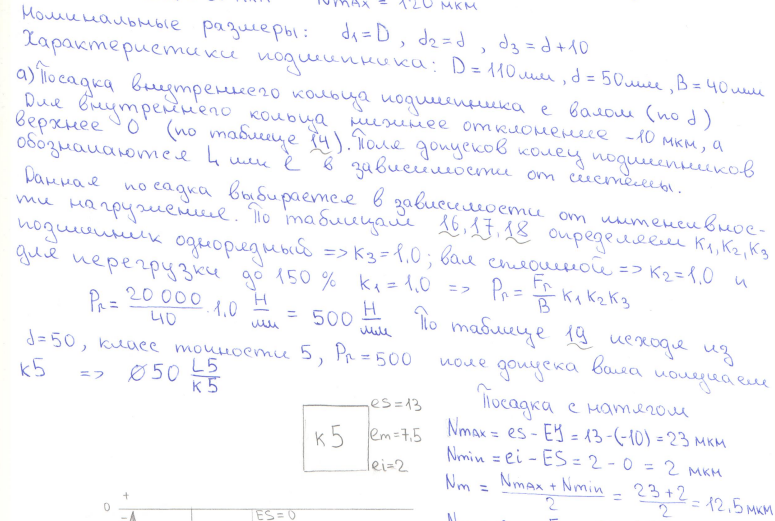 Nmax = 120 мкм
Номинальные размеры: d₁=D, d₂=d, d₃=d+10
Характеристики подшипника: D=110мм, d=50мм, B=40мм
а) Посадка внутреннего кольца подшипника с валом (по d)
Для внутреннего кольца нижнее отклонение -10 мкм, а
верхнее 0 (по таблице 14). Поле допусков колец подшипников
обозначаются L или l в зависимости от системы.
Данная посадка выбирается в зависимости от интенсивнос-
ти нагружение. По таблицам 16,17,18 определяем K₁,K₂,K₃
подшипник однорядный => K₃=1,0; вал сплошной => K₂=1,0 и
для перегрузки до 150% K₁=1,0 => Pr = Fr/B K₁K₂K₃
Pr = 20 000/40 · 1,0 Н/мм = 500 Н/мм По таблице 19 исходя из
d=50, класс точности 5, Pr=500 поле допуска вала получаем
к5 => ⌀50 L5/к5
Посадка с натягом
es=13
к5
em=7,5
ei=2
Nmax = es - EI = 13-(-10) = 23 мкм
Nmin = ei - ES = 2 - 0 = 2 мкм
Nm = (Nmax + Nmin)/2 = (23+2)/2 = 12,5 мкм
0 + -
ES=0